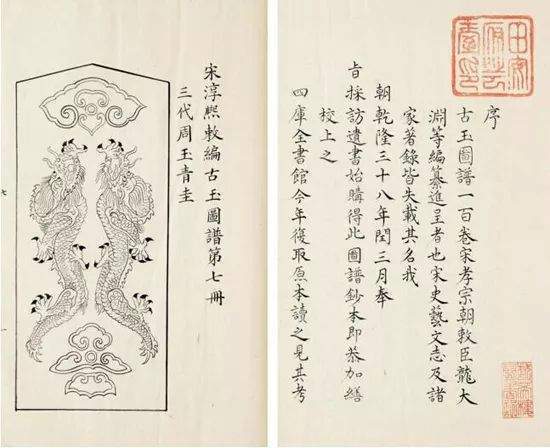 序
古玉圖譜一百卷宋孝宗朝敕臣龍大
淵等編纂進呈者也宋史藝文志及諸
家著錄皆失載其名我
朝乾隆三十八年閏三月奉
旨採訪遺書始購得此圖譜鈔本即恭加繕
校上之
四庫全書館今年復取原本讀之見其考
宋淳熙敕編古玉圖譜第七冊
三代周玉青圭